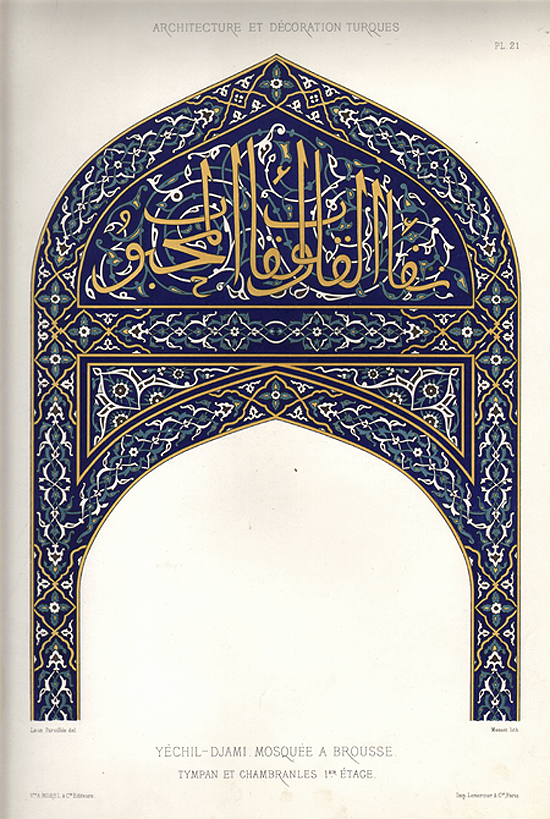 ARCHITECTURE ET DÉCORATION TURQUES
PL. 21
شفاء القلوب لقاء المحبوب
Léon Parvillée del.
lith.
YÉCHIL-DJAMI. MOSQUÉE A BROUSSE.
TYMPAN ET CHAMBRANLES 1ER ÉTAGE.
Vve A. MOREL & Cie Editeurs.
Imp. Lemercier & Cie, Paris